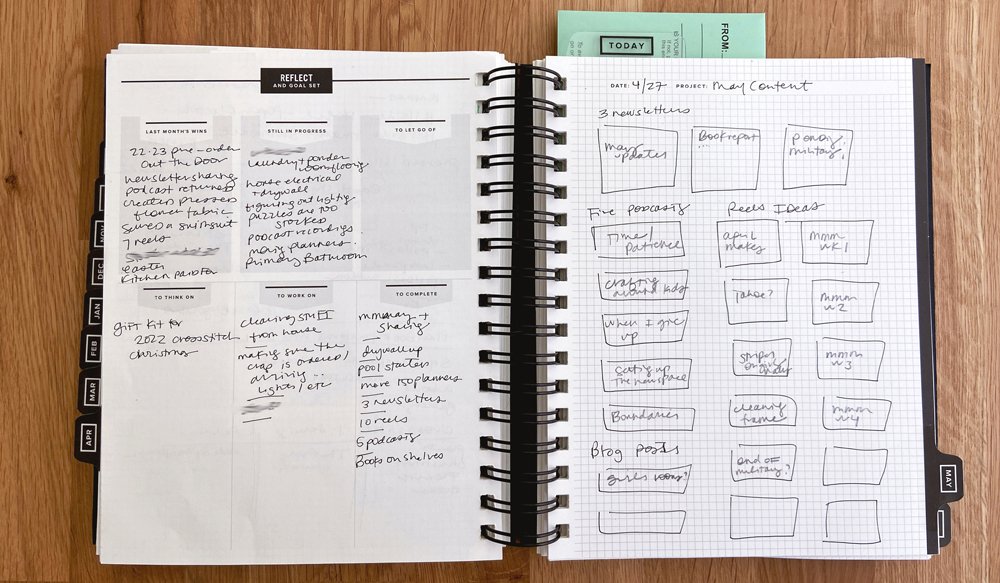 REFLECT
AND GOAL SET
LAST MONTH'S WINS
22-23 pre-order
Out The Door
newsletter sharing
podcast returned
created pressed
flower fabric
sewed a swimsuit
7 reels
easter
Kitchen
STILL IN PROGRESS
Laundry + powder
room flooring
house electrical
+ drywall
figuring out lighting
puzzles are too
stocked
podcast recordings
many planners.
Primary Bathroom
TO LET GO OF
TO THINK ON
gift kit for
2022 crosstitch
christmas
TO WORK ON
cleaning STUFF
from house
making sure the
crap is ordered/
arriving...
lights/etc
TO COMPLETE
mmmay +
sharing
drywall up
pool started
more 150 planners
3 newsletters
10 reels
5 podcasts
Books on shelves
NOV
DEC
JAN
FEB
MAR
APR
FROM:
IS YOUR
TODAY
DATE: 4/27 PROJECT: May Content
3 newsletters
may
updates
Book report
...
military
Five Podcasts
Time/
Patience
crafting
around kids
when I give
up
setting up
the new space
Boundaries
Blog posts
girls rooms?
Reels Ideas
april
makes
mmm
wk 1
Tahoe?
mmm
w2
stripes
mmm
w3
cleaning
frame
mmm
w4
end of
military?
MAY